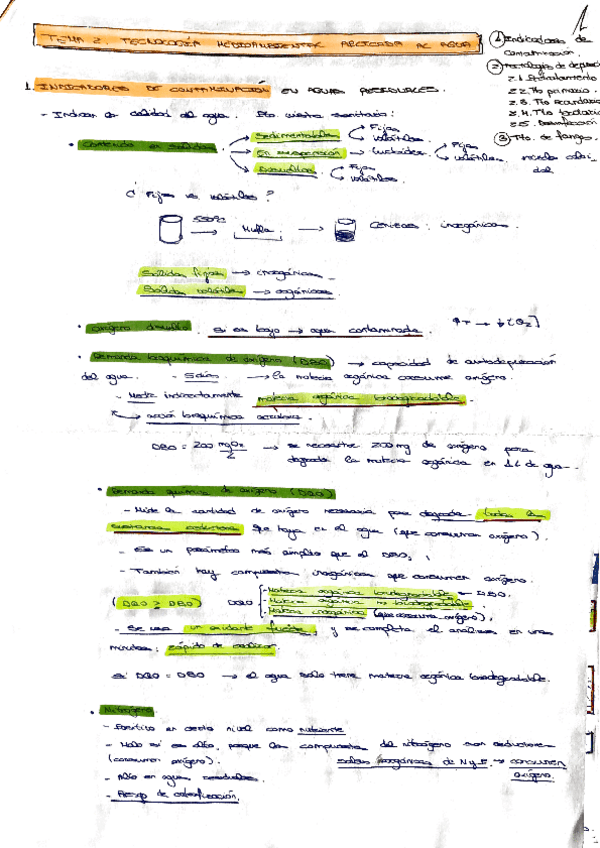 TEMA 2. TECNOLOGÍA MEDIOAMBIENTAL APLICADA AL AGUA
① Indicadores de contaminación.
② Tecnologías de depuración
2.1.
2.2. Tto primario.
2.3. Tto secundario
2.4. Tto terciario
2.5. Desinfección
③ Tto. de fangos.
1. INDICADORES DE CONTAMINACIÓN EN AGUAS RESIDUALES.
- Indican la calidad del agua.
• Contenido en sólidos
Sedimentables
Fijos
Volátiles.
En suspensión
Coloidales
Fijos
Volátiles.
Disueltos
Fijos
Volátiles.
¿ Fijos vs volátiles ?
550ºC
Mufla
Cenizas: inorgánicos.
Sólidos fijos → inorgánicos
Sólidos volátiles → orgánicos
• Oxígeno disuelto. Si es bajo → agua contaminada. ↑T → ↓[O2]
• Demanda bioquímica de oxígeno (DBO) → capacidad de autodepuración
del agua. - 5 días. → la materia orgánica consume oxígeno.
- Mide indirectamente materia orgánica biodegradable.
→ acción bioquímica aerobia.
DBO = 200 mgO2/L → se necesitan 200 mg de oxígeno para
degradar la materia orgánica en 1L de agua.
• Demanda química de oxígeno (DQO)
- Mide la cantidad de oxígeno necesaria para degradar todas las
sustancias que haya en el agua (que consuman oxígeno).
- Es un parámetro más amplio que el DBO,
- También hay compuestos inorgánicos que consumen oxígeno.
(DQO ≥ DBO) DQO
Materia orgánica biodegradable = DBO.
Materia orgánica no biodegradable
Materia inorgánica (que consume oxígeno).
- Se usa un oxidante fuerte, y se completa el análisis en unos
minutos; rápido de realizar.
si DQO = DBO → el agua solo tiene materia orgánica biodegradable.
• Nitrógeno
- Positivo en cierto nivel como nutriente
- Malo si es alto, porque los compuestos del nitrógeno son reductores
(consumen oxígeno). sales inorgánicas de N y P → consumen
oxígeno.
- Alto en aguas residuales.
- Riesgo de eutrofización.